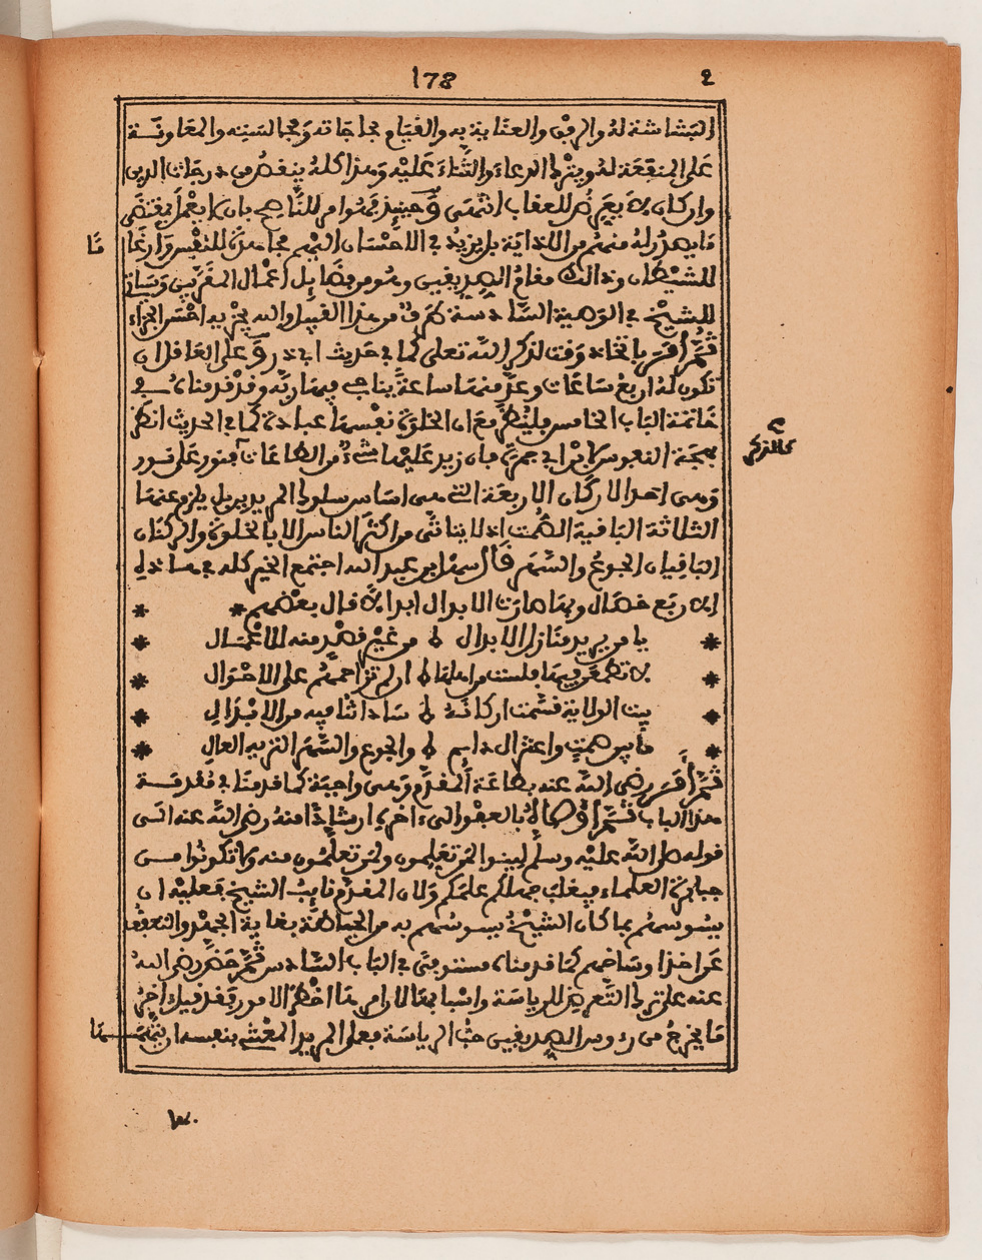 178 2
البشاشة له والرفق والعناية به والقيام بحاجاته ومجالسته والمعاونة
على المنفعة له وبترك الدعاء والثناء عليه وهذا كله ينقص من درجات الدين
وان كان لا يعرض للعقاب انتهى وحينئذ فمنوا من للناصح بان لا يعمل بمقتضى
ما يصدر له منهم من الاذاية بل يزيد في الاحسان اليهم مجاهدة للنفس وارغا
ما
للشيطان وذالك مقام الصديقين وهو من فضايل اعمال المقربين وسياتي
للشيخ في الوصية السادسة طرف من هذا القبيل والله يجزيه احسن الجزاء
ثم أمر باتخاذ وقت لذكر الله تعلى كما في حديث ابي ذر وعلى العاقل ان
تكون له اربع ساعات وعد منها ساعة يناجي فيها ربه وقد قدمناه في
خاتمة الباب الخامس فلينظر مع ان الخلوة نفسها عبادة كما في الحديث انظر
بهجة النفوس لابن ابي جمرة فان زيد عليها شيء من الطاعات فنور على نور
كالذكر
وهي احد الاركان الاربعة التي هي اساس سلوك المريدين بل يلزم عنها
الثلاثة الباقية الصمت اذ لا يتاتى من اكثر الناس الا بالخلوة والركنان
الباقيان الجوع والسهر قال سهل بن عبد الله اجتمع الخير كله في هاذه
الاربع خصال وبها صارت الابدال ابدالا قال بعضهم
يا من يريد منازل الابدال من غير قصد منه للاعمال
لا تطمعن فيها فلست من اهلها ان لم تزاحمهم على الاحوال
بيت الولاية قسمت اركانه ساداتنا فيه من الابدال
ما بين صمت واعتزال دايم والجوع والسهر النزيه العال
ثم أمر رضي الله عنه بطاعة المقدم وهي واجبة كما قدمنا في مقدمة
هذا الباب ثم أوصاه بالعفو الى ءاخره ارشادا منه رضي الله عنه الى
قوله صلى الله عليه وسلم لينوا لمن تعلمون ولمن تعلمون منه ولا تكونوا من
جبابرة العلماء فيغلب جهلكم علمكم ولان المقدم نايب الشيخ فعليه ان
يسوسهم بما كان الشيخ يسوسهم به من الحياطة بغاية الجهد والتعفف
عن اخذ اوساخهم كما قدمناه مستوفى في الباب السادس ثم حض رضي الله
عنه على ترك التعرض للرياسة واسبابها لانها من اخطر الامور فقد قيل ءاخر
ما يخرج من رءوس الصديقين حب الرياسة فعلى المريد المعتني بنفسه ان يتهمها